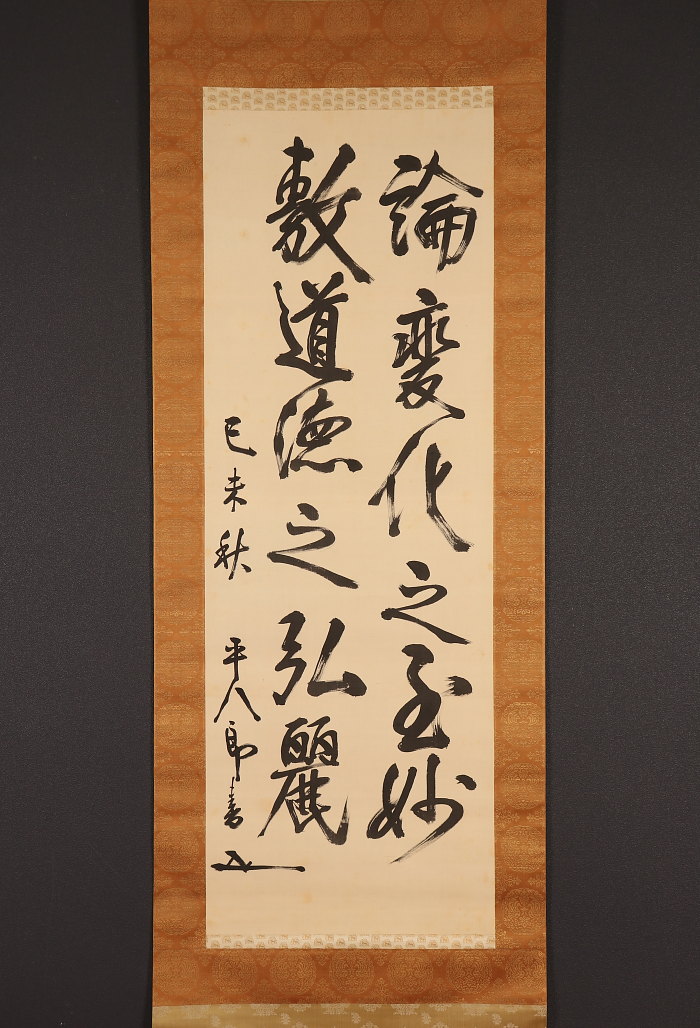 論變化之至妙
敷道德之弘麗
己未秋 平八郎書